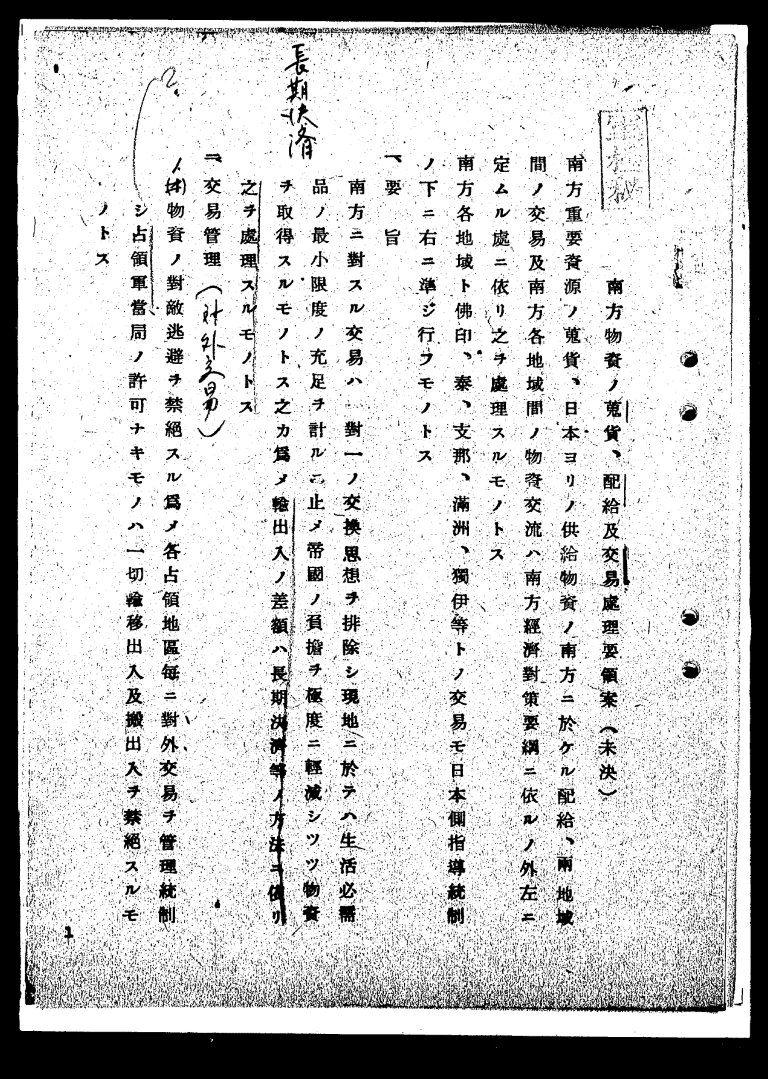 南方物資ノ蒐貨、配給及交易處理要領案(未決)
南方重要資源ノ蒐貨、日本ヨリノ供給物資ノ南方ニ於ケル配給、兩地域
間ノ交易及南方各地域間ノ物資交流ハ南方經濟對策要綱ニ依ルノ外左ニ
定ムル處ニ依リ之ヲ處理スルモノトス
南方各地域ト佛印、泰、支那、滿洲、獨伊等トノ交易モ日本側指導統制
ノ下ニ右ニ準ジ行フモノトス
一、要旨
長期決済
南方ニ對スル交易ハ一對一ノ交換思想ヲ排除シ現地ニ於テハ生活必需
品ノ最小限度ノ充足ヲ計ルニ止メ帝國ノ負擔ヲ極度ニ輕減シツツ物資
ヲ取得スルモノトス之カ爲メ輸出入ノ差額ハ長期決濟等ノ方法ニ依リ
之ヲ處理スルモノトス
二、交易管理(対外交易)
物資ノ對敵逃避ヲ禁絕スル爲メ各占領地區每ニ對外交易ヲ管理統制
シ占領軍當局ノ許可ナキモノハ一切輸移出入及搬出入ヲ禁絕スルモ
ノトス
1